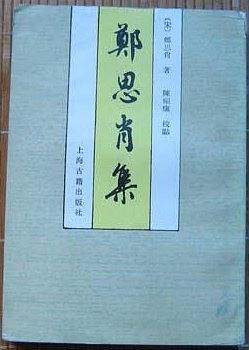 〔宋〕鄭思肖 著 陳福康 校點
鄭思肖集
上海古籍出版社